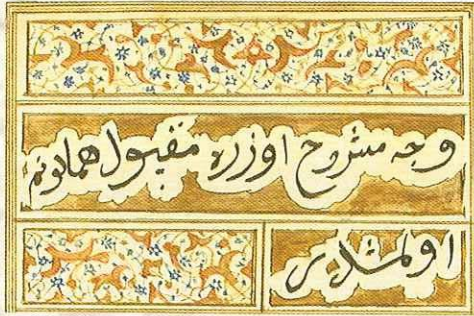 وجه مشروح اوزره مقبول همایونم
اولمشدر